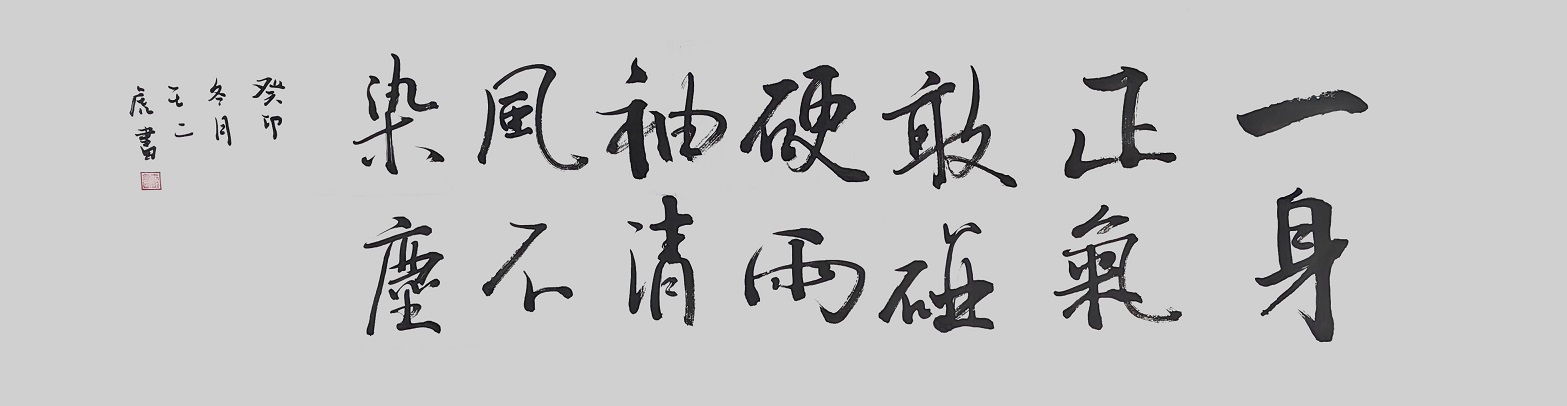 一身
正氣
敢碰
硬兩
袖清
風不
染塵
癸卯
冬月
王二
虎書